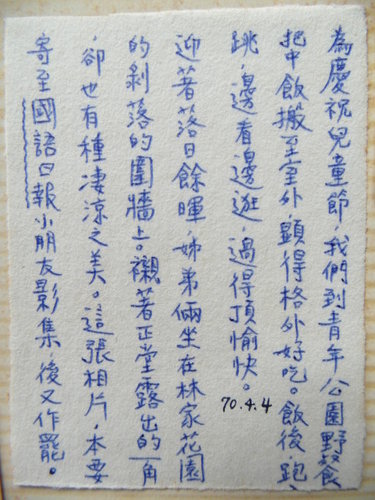 為慶祝兒童節，我們到青年公園野餐
把中飯搬至室外，顯得格外好吃。飯後，跑
跳，邊看邊逛，過得頂愉快。
70.4.4
迎著落日餘暉，姊弟倆坐在林家花園
的剝落的圍牆上。襯著正堂露出的一角
，卻也有種淒涼之美。這張相片，本要
寄至國語日報小朋友影集，後又作罷。